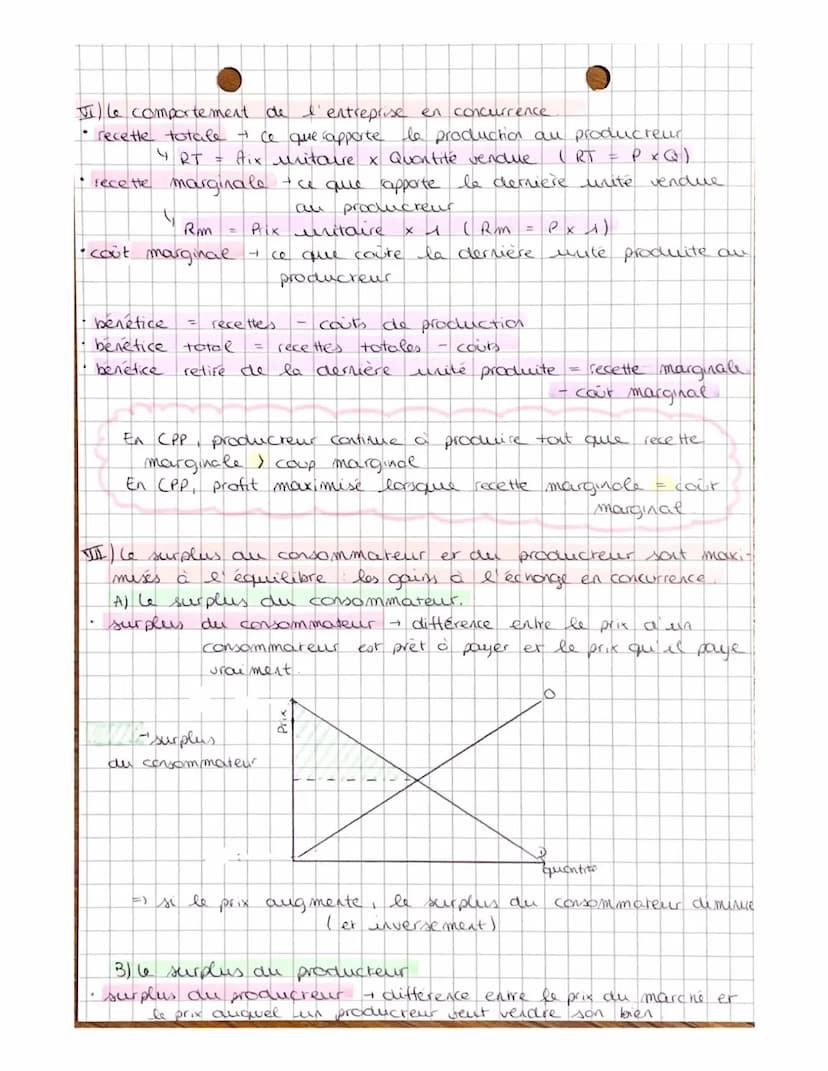 VI) Le comportement de l'entreprise en concurrence
• recette totale → ce que rapporte la production au producteur
↳ RT = Prix unitaire x Quantité vendue ( RT = P x Q)
• recette marginale → ce que rapporte la dernière unité vendue
au producteur
↳ Rm = Prix unitaire x 1 ( Rm = P x 1)
• coût marginal → ce que coûte la dernière unité produite au
producteur
• bénéfice = recettes - coûts de production
• bénéfice total = recettes totales - coûts
• bénéfice retiré de la dernière unité produite = recette marginale
- coût marginal
En CPP, producteur continue à produire tant que recette
marginale > coup marginal
En CPP, profit maximisé lorsque recette marginale = coût
marginal
VII) Le surplus du consommateur et du producteur sont maxi-
misés à l'équilibre : les gains à l'échange en concurrence.
A) Le surplus du consommateur.
• surplus du consommateur → différence entre le prix d'un
consommateur est prêt à payer et le prix qu'il paye
vraiment.
Prix
O
→ surplus
du consommateur
D
quantité
=> si le prix augmente, le surplus du consommateur diminue
( et inversement)
B) Le surplus du producteur
• surplus du producteur → différence entre le prix du marché et
le prix auquel un producteur veut vendre son bien